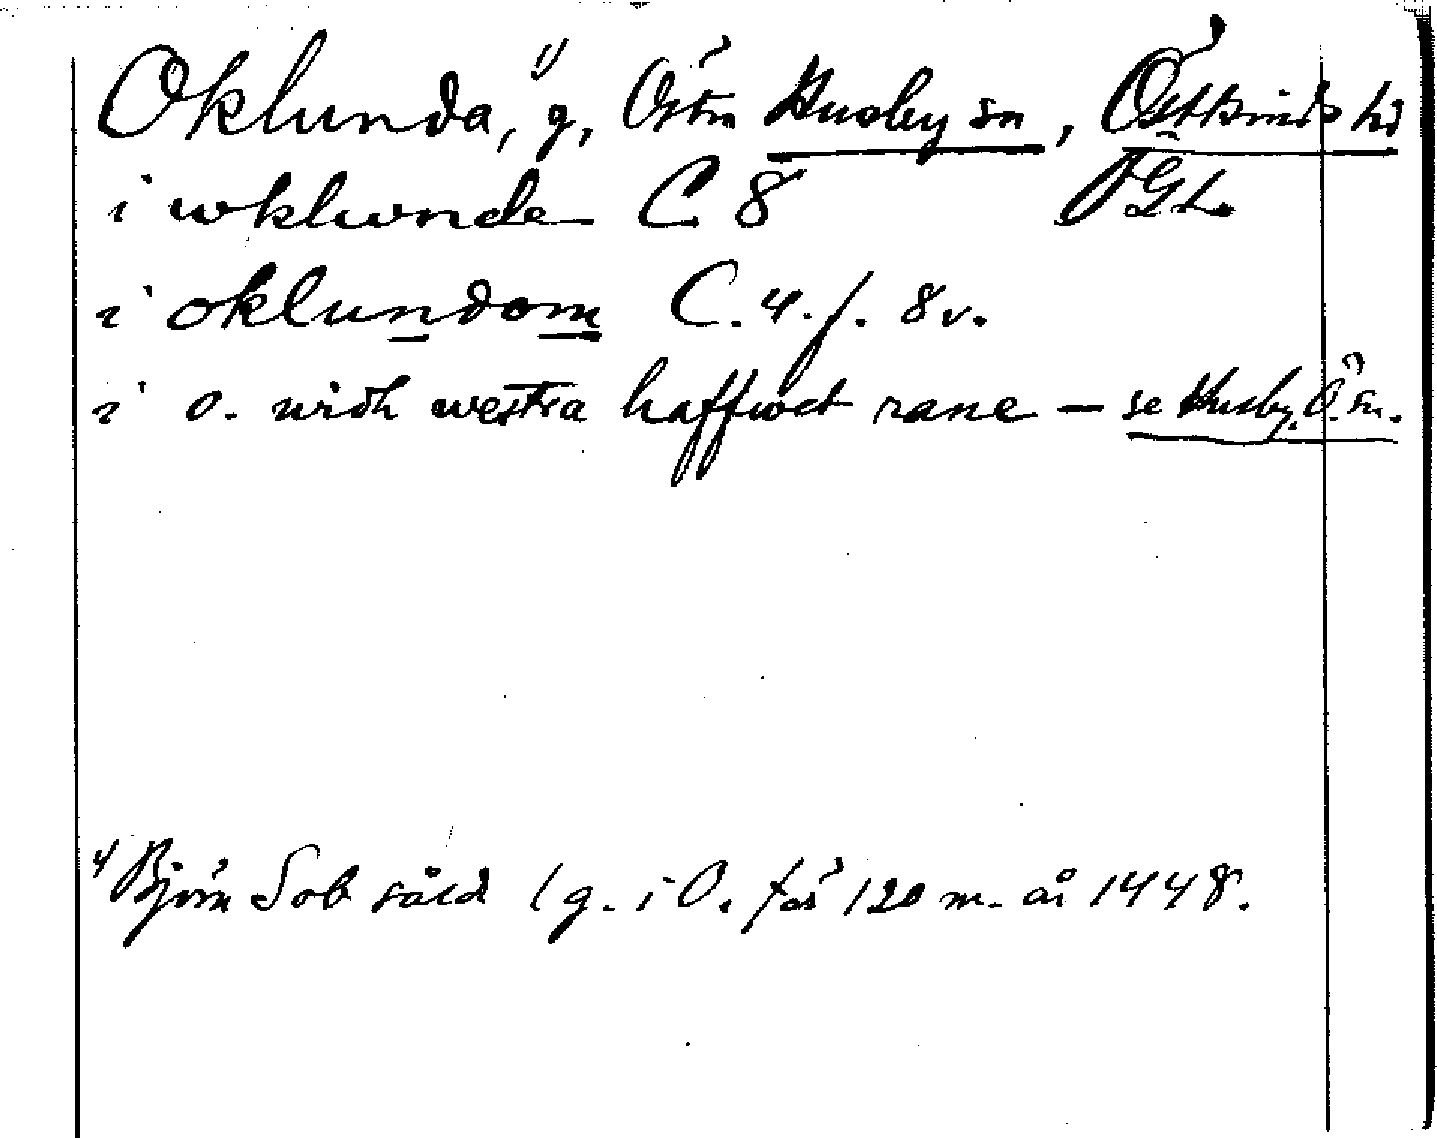 Oklunda,¹⁾ g, Östra Husby sn, Östkinds hd
i wklwnde C 8 ÖGL
i oklundom C. 4. f. 8v.
i o. widh westra haffwet rane — se Husby, Ö. sn.
¹⁾ Björn Sob såld 1 g. i O. för 120 m. år 1448.